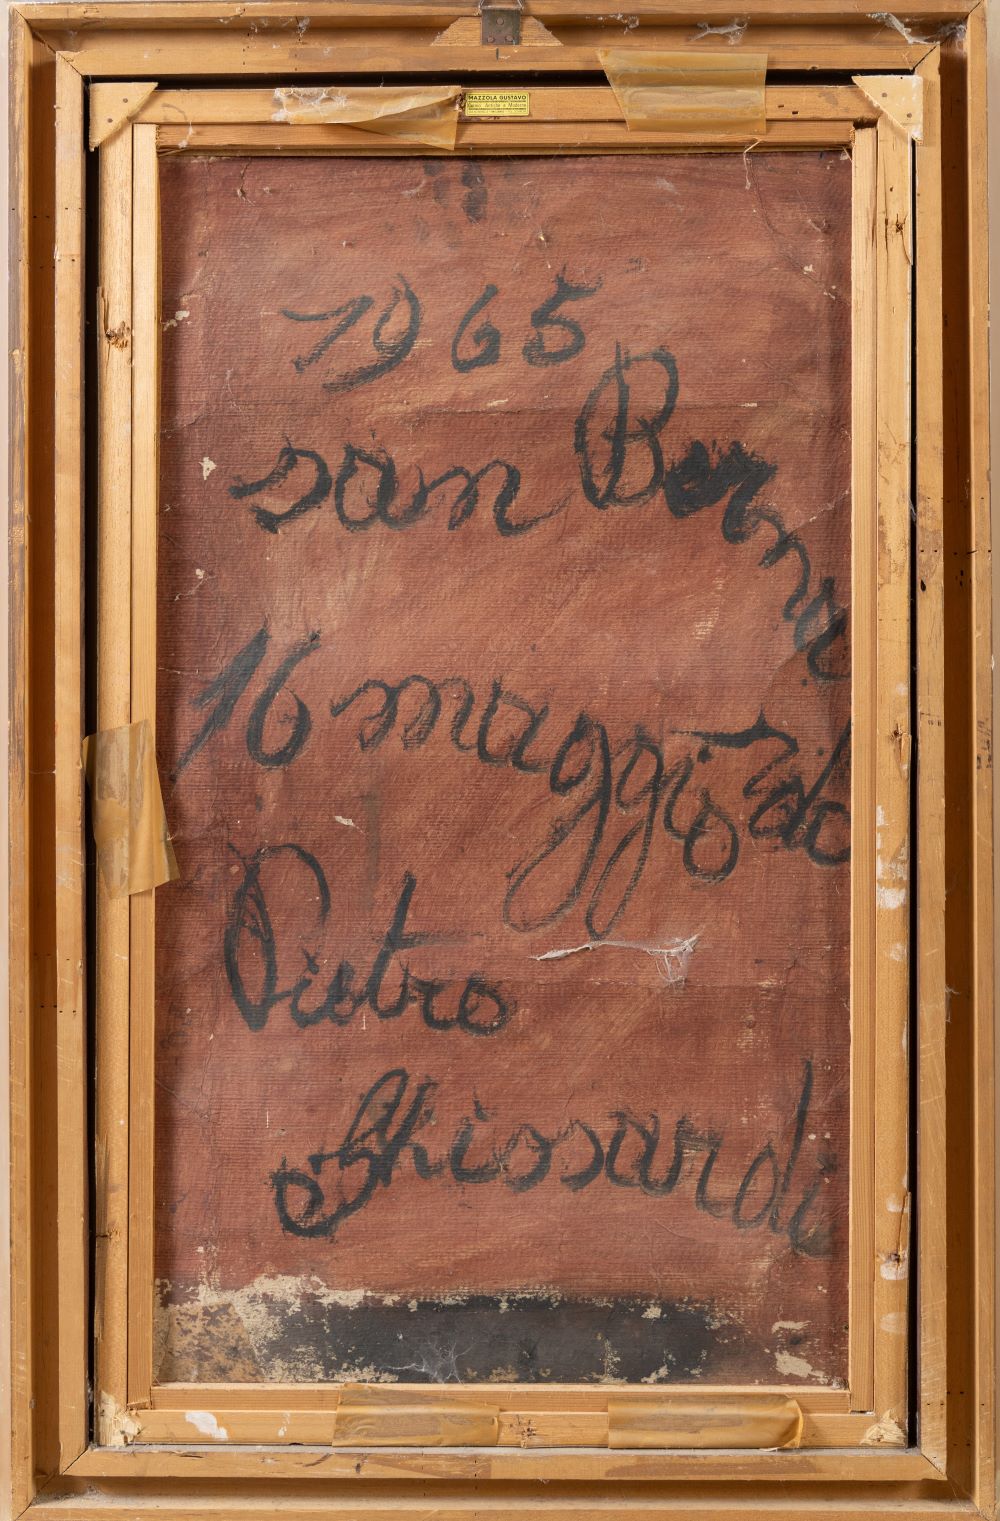 MAZZOLA GUSTAVO
Cornici Antiche e Moderne
1965
san Berna
16 maggio do
Pietro
Ghissardi